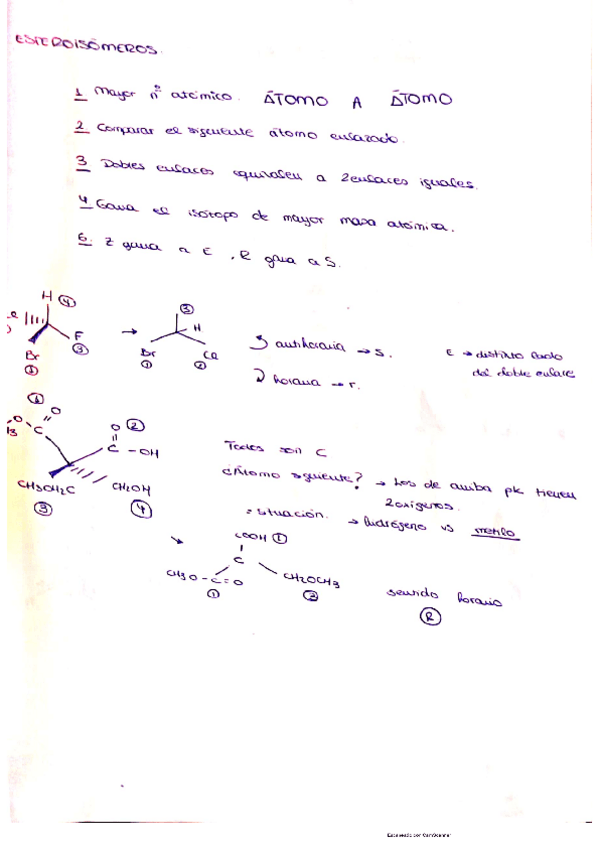 ESTEROISÓMEROS.
1 Mayor nº atómico. ÁTOMO A ÁTOMO
2 Comparar el siguiente átomo enlazado.
3 Dobles enlaces equivalen a 2 enlaces iguales.
4 Gana el isótopo de mayor masa atómica.
5. Z gana a E, R gana a S.
H ④
F ③
Br ①
③
H
Br ①
Cl ②
antihoraria → S.
horaria → r.
E → distinto lado
del doble enlace
①
O
C
O ②
C - OH
CH3OH2C ③
CH2OH ④
Todos son C
¿Átomo siguiente? → Los de arriba pk tienen
2 oxígenos.
= situación. → hidrógeno vs metilo
COOH ①
C
CH3O-C=O ①
CH2OCH3
sentido horario
Ⓡ
Escaneado con CamScanner